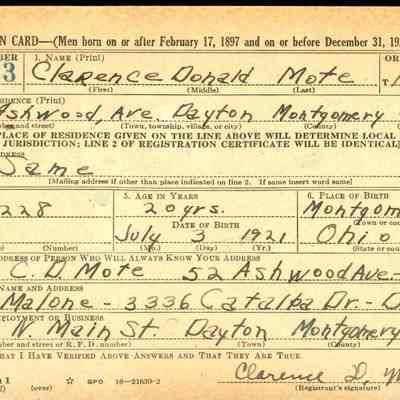 N CARD—(Men born on or after February 17, 1897 and on or before December 31, 192
BER 1. NAME (Print) OR
3 Clarence Donald Mote
(First) (Middle) (Last)
IDENCE (Print)
Ashwood, Ave. Dayton Montgomery
ber and street) (Town, township, village, or city) (County)
PLACE OF RESIDENCE GIVEN ON THE LINE ABOVE WILL DETERMINE LOCAL
JURISDICTION; LINE 2 OF REGISTRATION CERTIFICATE WILL BE IDENTICAL]
ADDRESS
Same
[Mailing address if other than place indicated on line 2. If same insert word same]
5. AGE IN YEARS 6. PLACE OF BIRTH
228 20 yrs. Montgom
DATE OF BIRTH (Town or cou
July 3 1921 Ohio
(Number) (Mo.) (Day) (Yr.) (State or co
ADDRESS OF PERSON WHO WILL ALWAYS KNOW YOUR ADDRESS
C. D. Mote 52 Ashwood Ave.-
NAME AND ADDRESS
Malone - 3336 Catalpa Dr.- D
EMPLOYMENT OR BUSINESS
N. Main St. Dayton Montgomery
and street or R. F. D. number) (Town) (County)
THAT I HAVE VERIFIED ABOVE ANSWERS AND THAT THEY ARE TRUE.
1 (over) ☆ GPO 16—21630-2 Clarence D. M